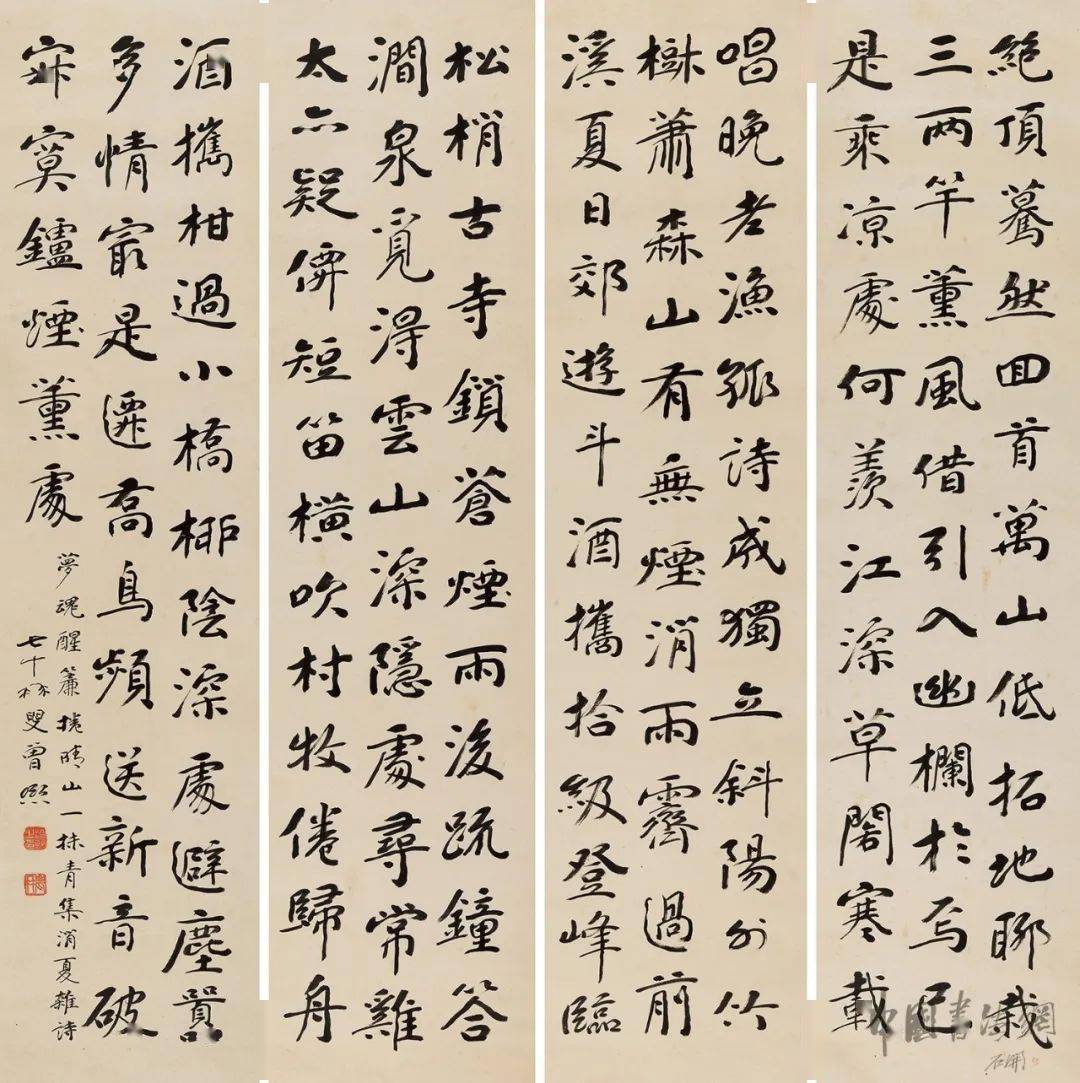 絕頂驀然回首萬山低拓地聊栽
三兩竿薰風借引入幽欄於焉已
是乘涼處何羨江深草閣寒載
唱晚老漁孤詩成獨立斜陽外竹
樹蕭森山有無煙消雨霽過前
溪夏日郊遊斗酒攜拾級登峰臨
松梢古寺鎖蒼煙雨後疏鐘答
澗泉覓得雲山深隱處尋常雞
犬亦疑僊短笛橫吹村牧倦歸舟
酒攜柑過小橋柳陰深處避塵囂
多情最是遷喬鳥頻送新音破
寂寞鑪煙薰處
夢魂醒簾捲晴山一抹青集消夏雜詩
七十叟曾熙
中国書法網